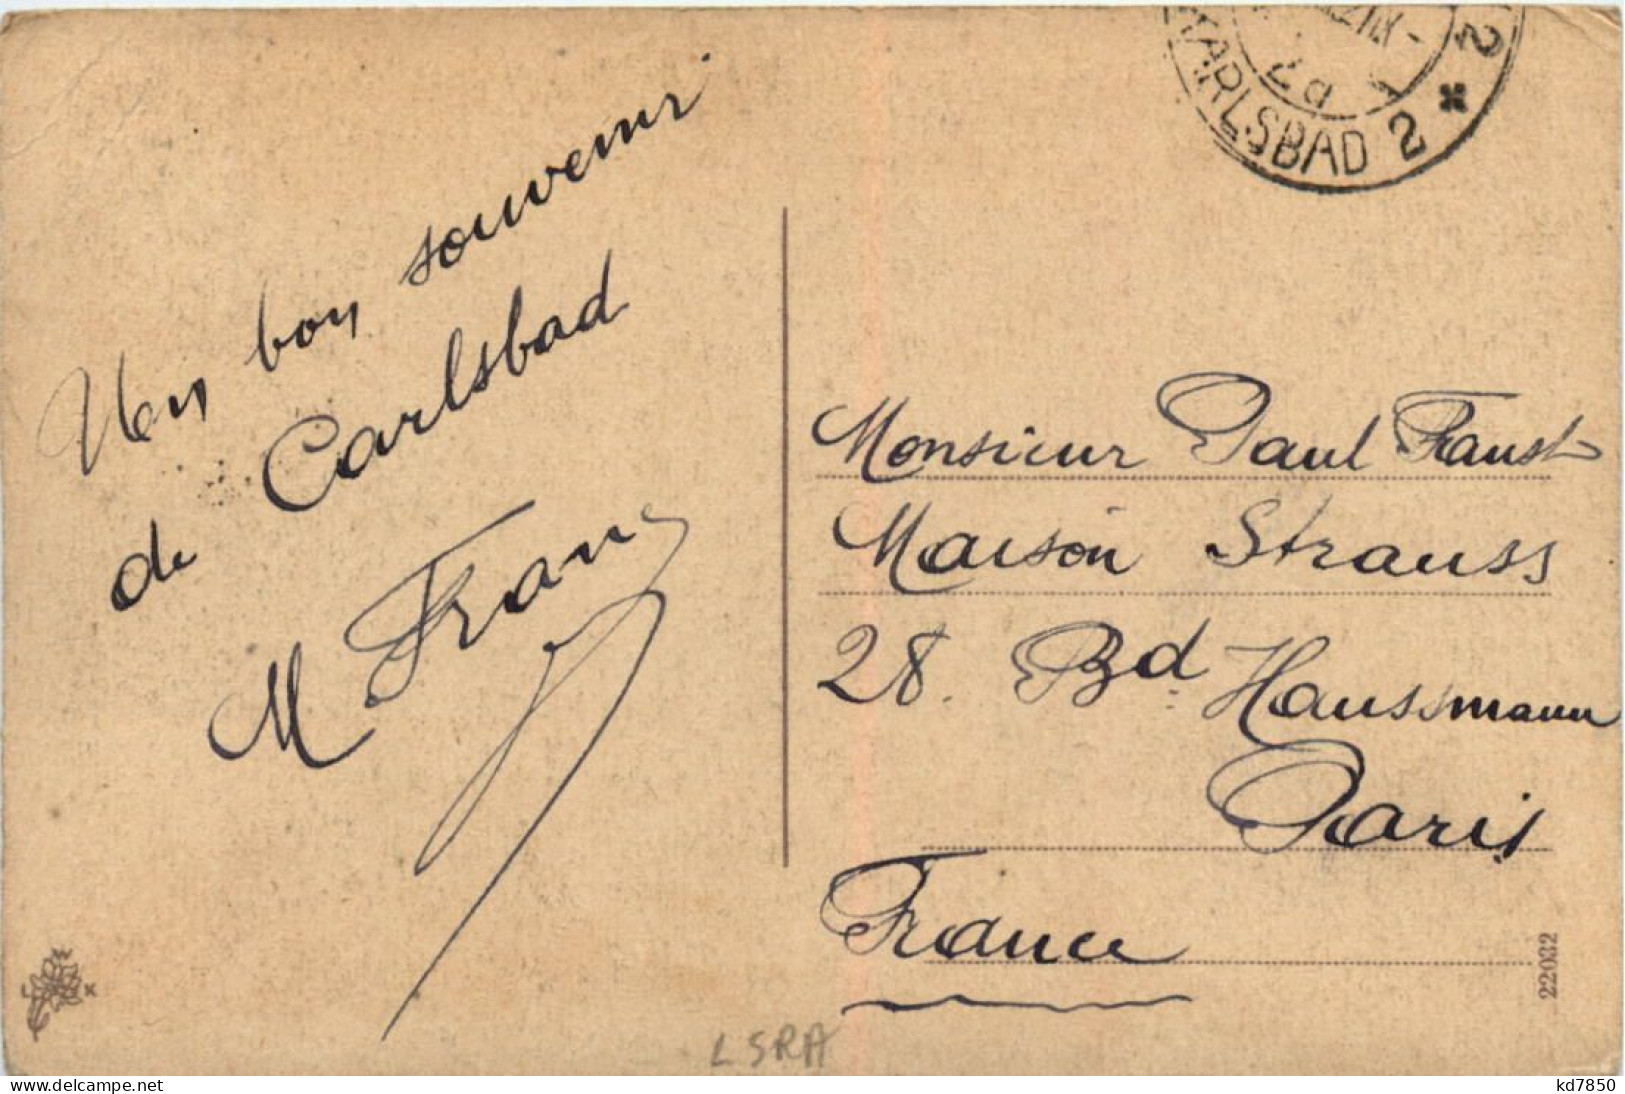 Un bon souvenir
de Carlsbad
M. Franz
KARLSBAD 2
2a
2
Monsieur Paul Faust
Maison Strauss
28. Bd. Haussmann
Paris
France
22032
LSRA
www.delcampe.net
kd7850